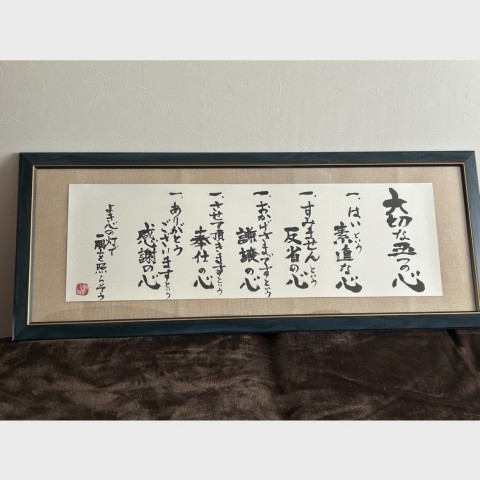 大切な五つの心
一、はいという
素直な心
一、すみませんという
反省の心
一、おかげさまですという
謙譲の心
一、させて頂きますという
奉仕の心
一、ありがとう
ございますという
感謝の心
よき心の灯で
一隅を照らそう